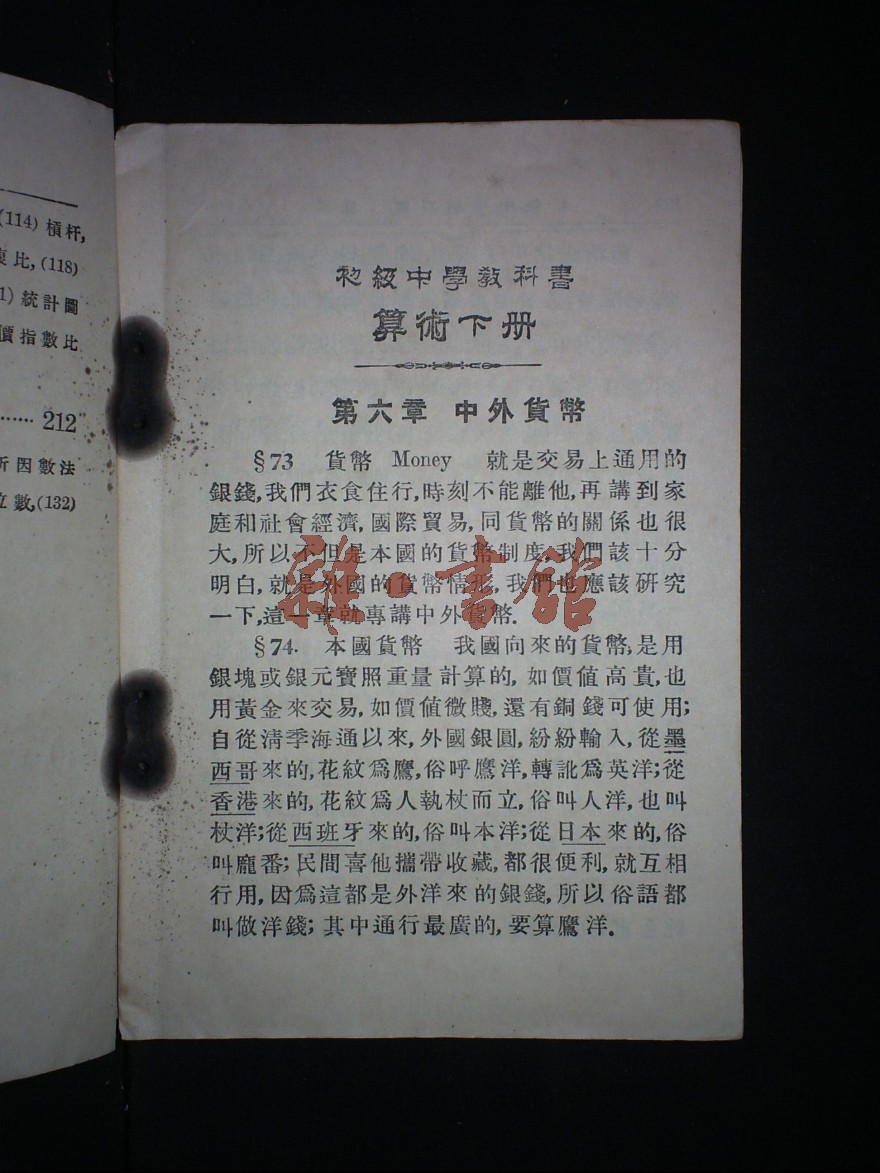 (114) 槓杆,
比,(118)
1) 統計圖
價指數比
…… 212
析因數法
立數,(132)
初級中學教科書
算術下册
第六章 中外貨幣
§73 貨幣 Money 就是交易上通用的
銀錢,我們衣食住行,時刻不能離他,再講到家
庭和社會經濟,國際貿易,同貨幣的關係也很
大,所以不但是本國的貨幣制度,我們該十分
明白,就是外國的貨幣情形,我們也應該研究
一下,這一章就專講中外貨幣.
§74. 本國貨幣 我國向來的貨幣,是用
銀塊或銀元寶照重量計算的,如價值高貴,也
用黃金來交易,如價值微賤,還有銅錢可使用;
自從淸季海通以來,外國銀圓,紛紛輸入,從墨
西哥來的,花紋爲鷹,俗呼鷹洋,轉訛爲英洋;從
香港來的,花紋爲人執杖而立,俗叫人洋,也叫
杖洋;從西班牙來的,俗叫本洋;從日本來的,俗
叫龐番;民間喜他攜帶收藏,都很便利,就互相
行用,因爲這都是外洋來的銀錢,所以俗語都
叫做洋錢;其中通行最廣的,要算鷹洋.
雜·書館